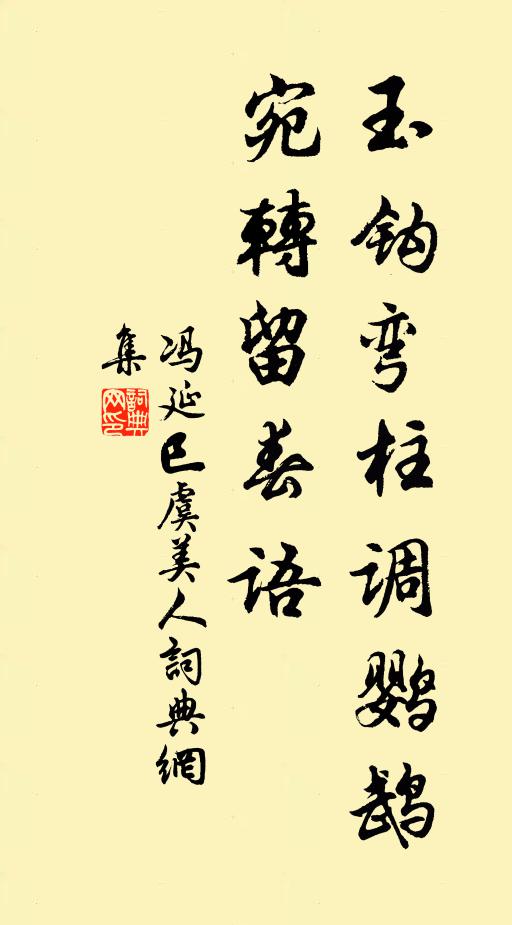 玉钩弯柱调鹦鹉
宛轉留春语
冯延巳虞美人詞典網
集
詞典网印